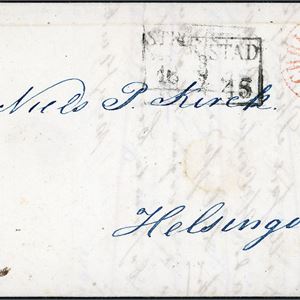 STRÖMSTAD
18 3
45
Niels P. Kirck
Helsingö